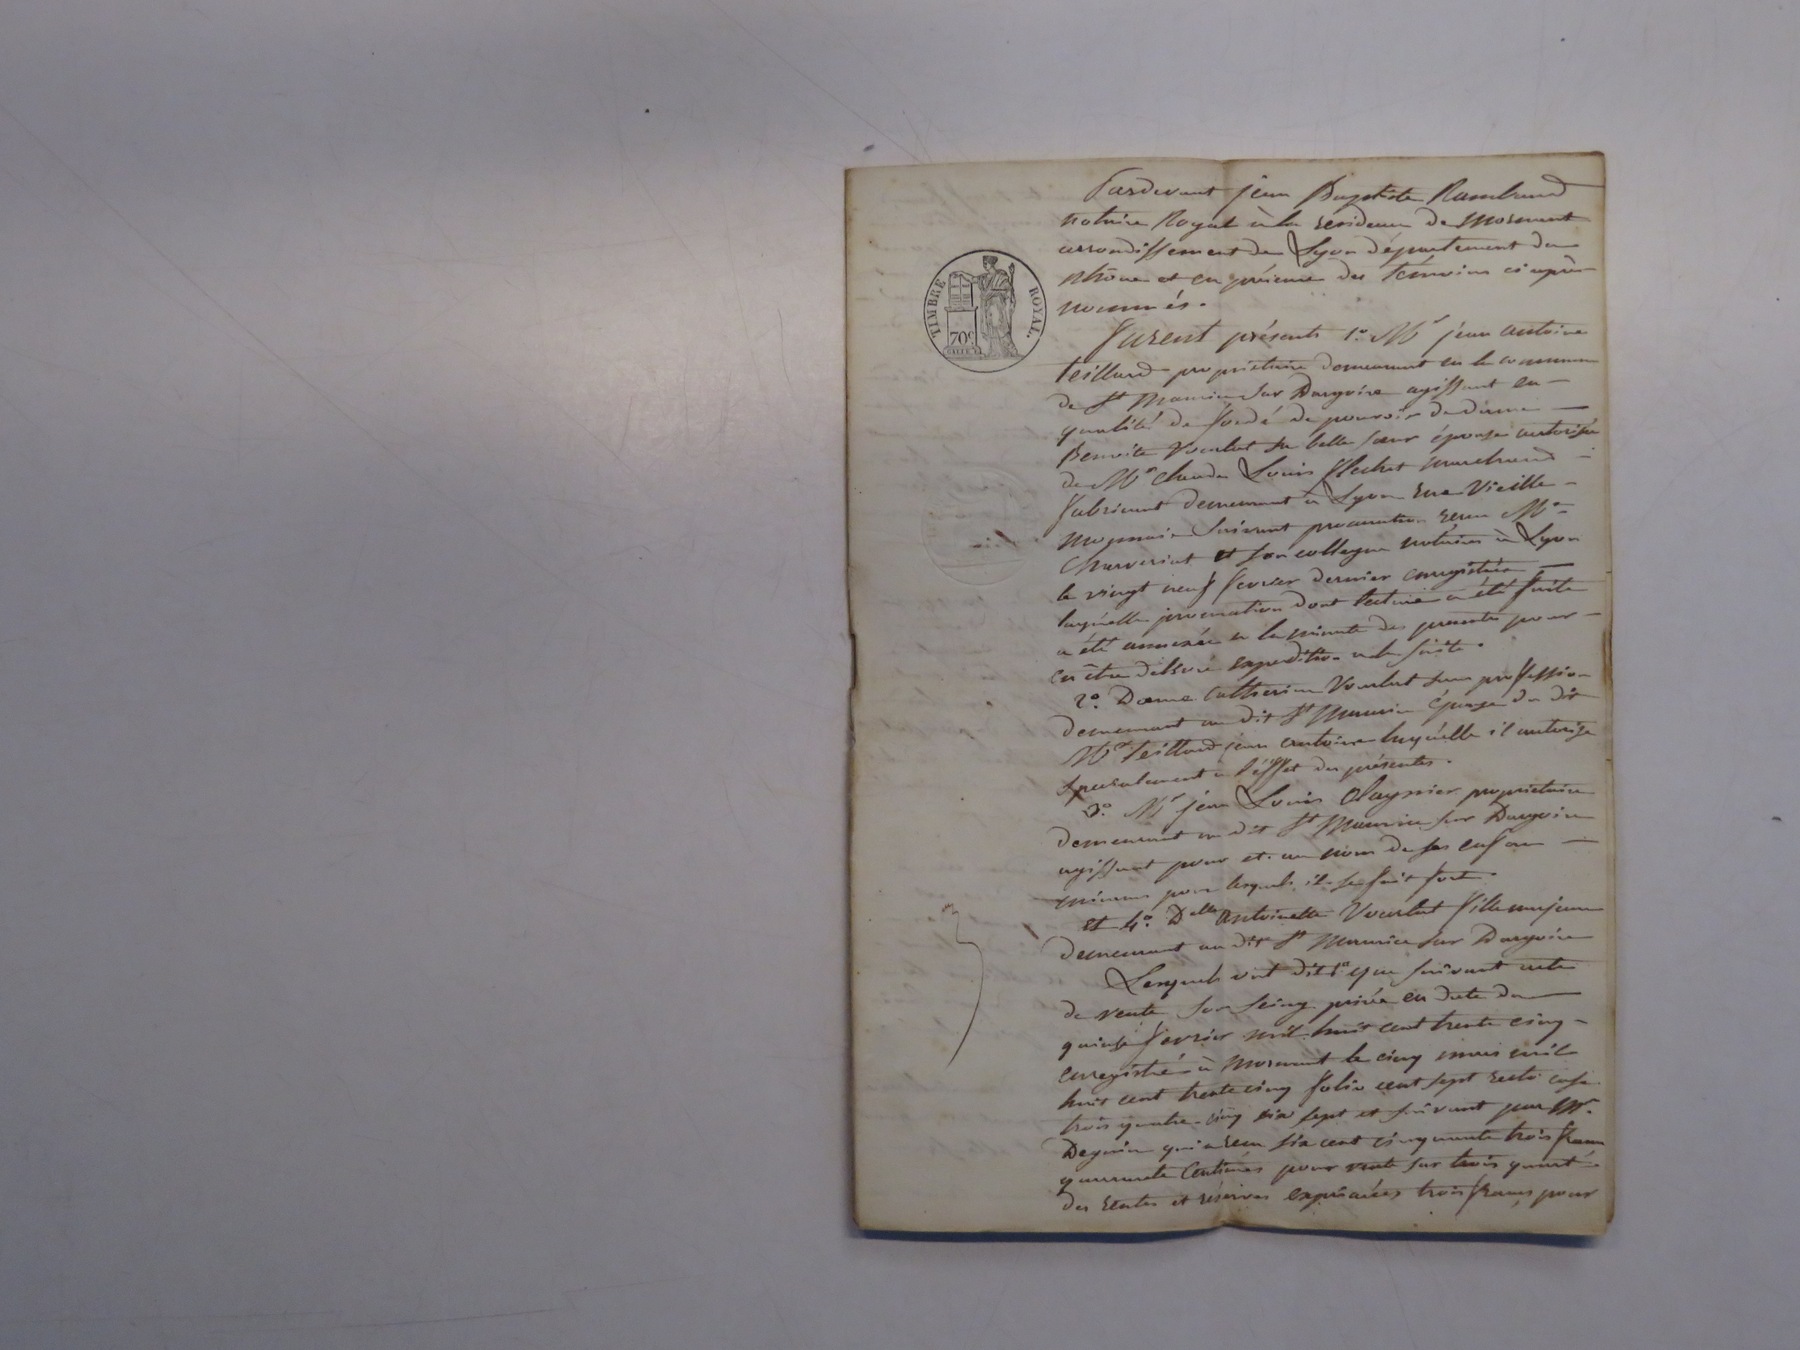 Pardevant jean Baptiste Rambaud
notaire Royal à la residence de Mornant
arrondissement de Lyon département du
rhône et en présence des témoins ci après
nommés.
TIMBRE ROYAL.
70c
Furent présents 1.o Mr jean antoine
teillard propriétaire demeurant en la commune
de St Maurice sur Dargoire agissant en
qualité de fondé de pouvoir de dame
Benoite Vourlat sa belle sœur épouse autorisée
de Mr Claude Louis flechet marchand
fabricant demeurant à Lyon rue Vieille
Monnaie suivant procuration reçue Me
Charveriat et son collegue notaires à Lyon
le vingt neuf fevrier dernier enregistrée
laquelle procuration dont lecture a été faite
a été annexée a la minute des presentes pour
en être délivré expedition a la suite.
2o. Dame Catherine Vourlat sans profession
demeurant au dit St Maurice épouse du dit
Mr teillard jean antoine laquelle il autorise
specialement a l'éffet des présentes.
3o. Mr jean Louis propriétaire
demeurant au dit St Maurice sur Dargoire
agissant pour et au nom de ses enfans
mineurs pour lesquels il se fait fort.
et 4o. Delle Antoinette Vourlat fille majeure
demeurant au dit St Maurice sur Dargoire
Lesquels ont dit 1o que suivant acte
de vente sou seing privée en date du
quinze fevrier mil huit cent trente cinq
enregistré à Mornant le cinq mars mil
huit cent trente cinq folio cent sept recto case
trois quatre cinq six sept et suivant par Mr.
qui a reçu six cent cinquante trois francs
quarante Centimes pour vente sur trois quart
des rentes et réserves exprimées trois francs pour